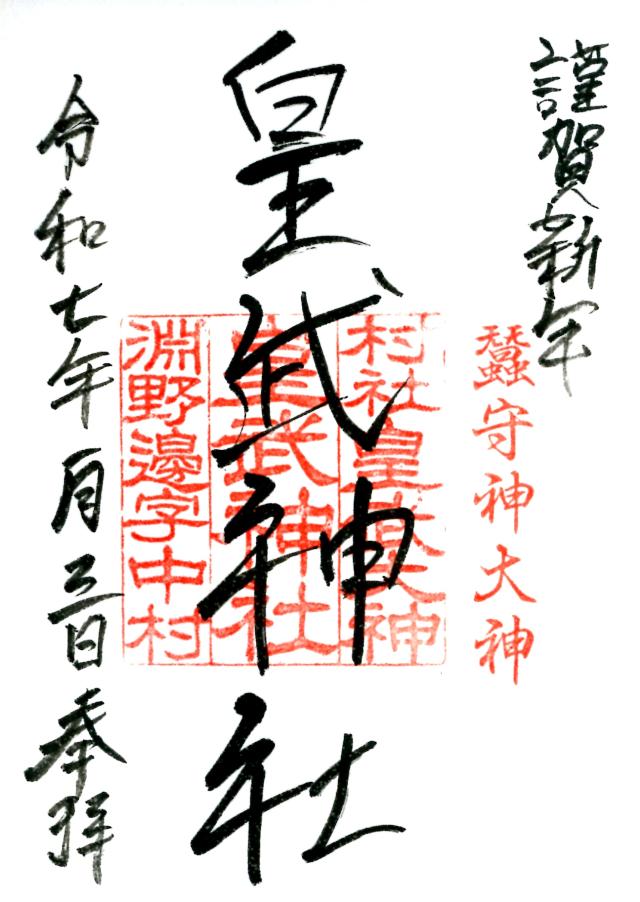 謹賀新年
蠶守神大神
皇武神社
村社皇武大神
皇武神社
淵野邊字中村
令和七年一月三日奉拝